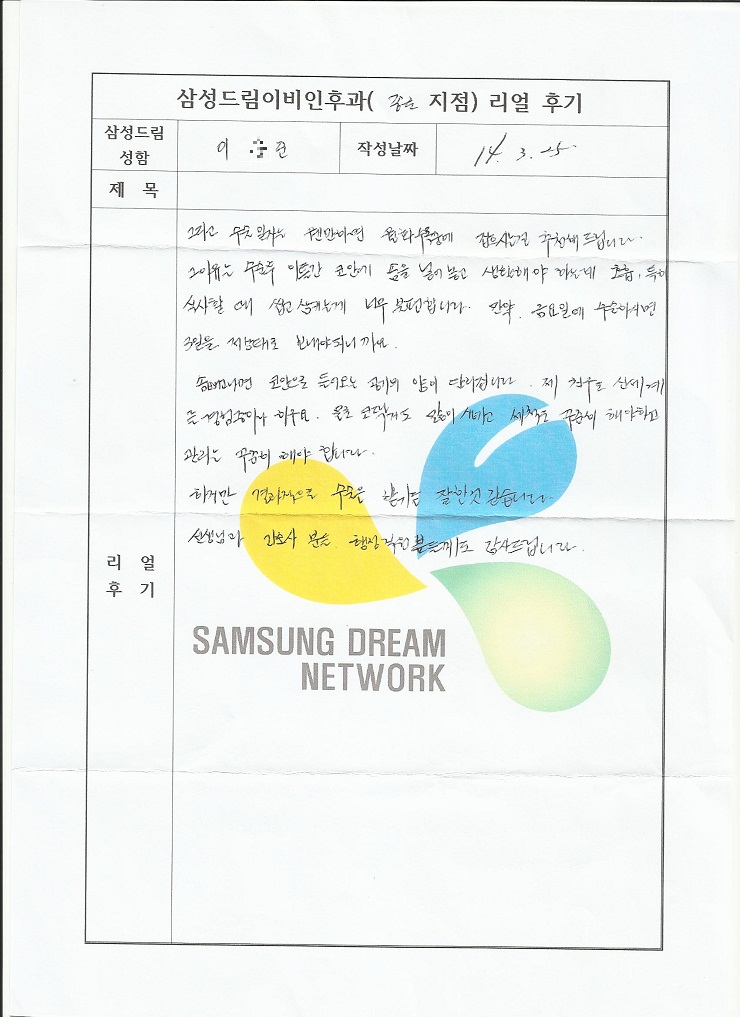 삼성드림이비인후과( 종로 지점) 리얼 후기
삼성드림
성함
이 연
작성날짜
14. 3. 25.
제 목
리 얼
후 기
그리고 수술 일자는 웬만하면 월화수목중에 잡으시는걸 추천해드립니다.
그이유는 수술후 이틀간 코안에 솜을 넣어놓고 생활해야 하는데 호흡, 특히
식사할 때 씹고 삼키는게 너무 불편합니다. 만약, 금요일에 수술하시면
주말을 제대로 보내야되니까요.
솜빼고나면 코안으로 들어오는 공기의 양이 달라집니다. 제 친구도 신세계
는 경험중이라 하구요. 물론 코딱지도 많이 생기고 세척도 꾸준히 해야하고
관리는 꾸준히 해야 합니다.
하지만 결과적으로 수술은 하기를 잘한것 같습니다.
선생님과 간호사 분들, 행정직원분들께도 감사드립니다.
SAMSUNG DREAM
NETWORK